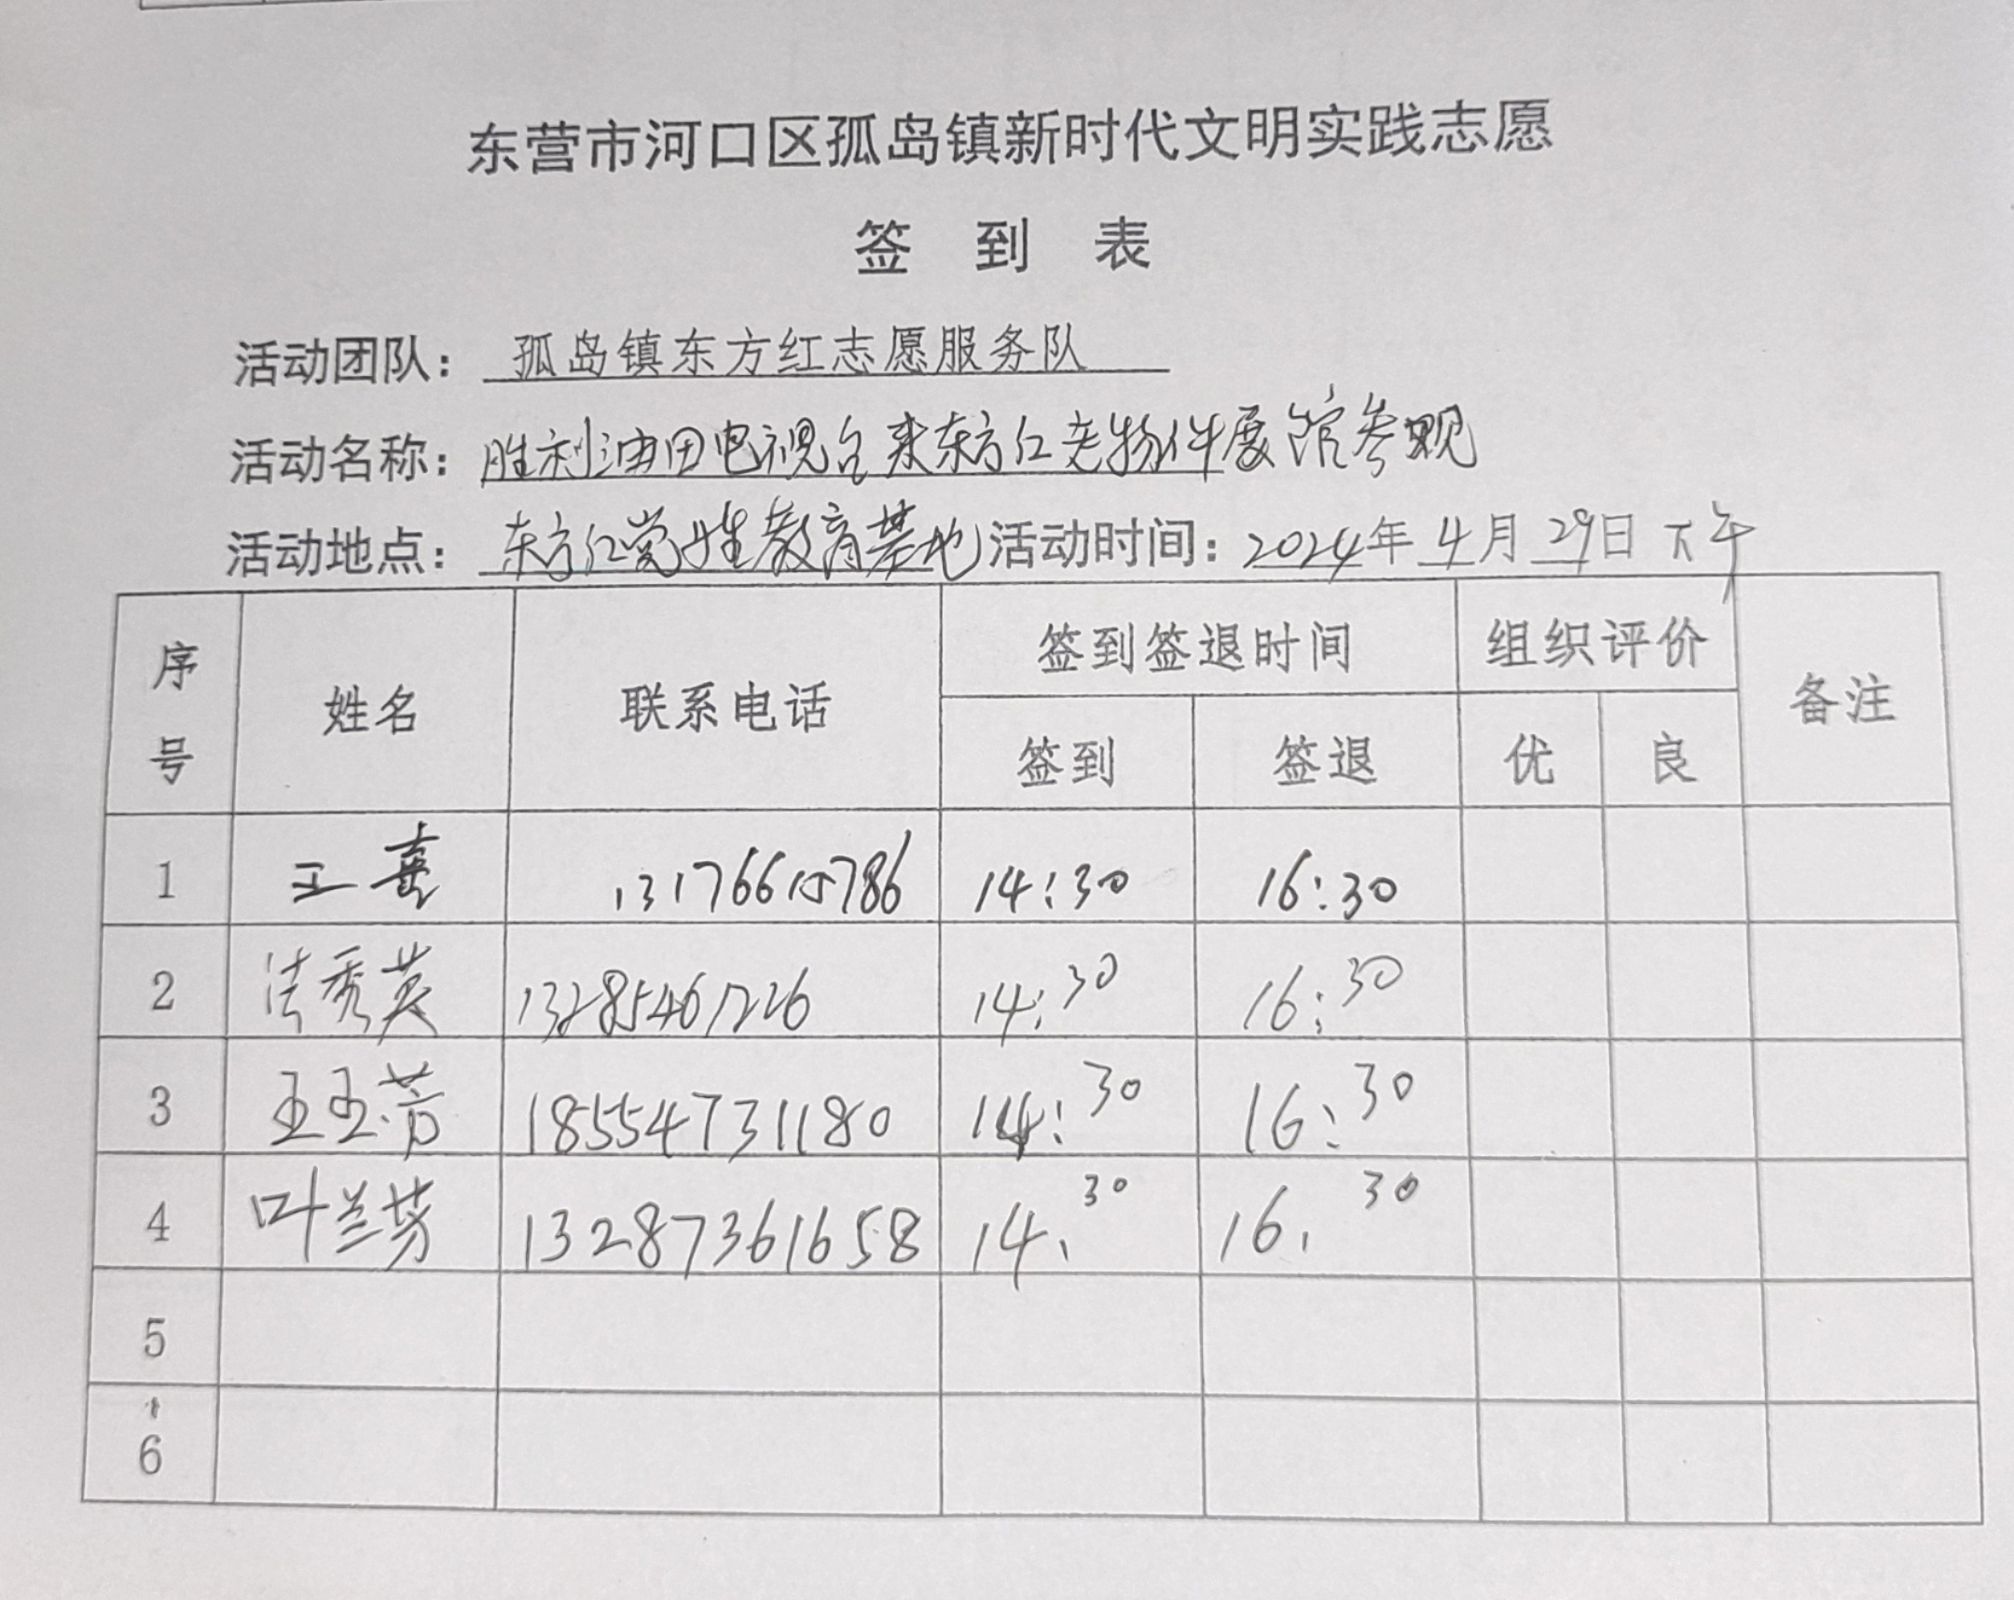 东营市河口区孤岛镇新时代文明实践志愿
签 到 表
活动团队：孤岛镇东方红志愿服务队
活动名称：胜利油田电视台来东方红老物件展馆参观
活动地点：东方红党性教育基地 活动时间：2024年4月29日下午
序号 姓名 联系电话 签到签退时间 组织评价 备注
签到 签退 优 良
1 王喜 13176615786 14:30 16:30
2 法秀英 13285461226 14:30 16:30
3 王玉芳 18554731180 14:30 16:30
4 叶兰芳 13287361658 14:30 16:30
5
6